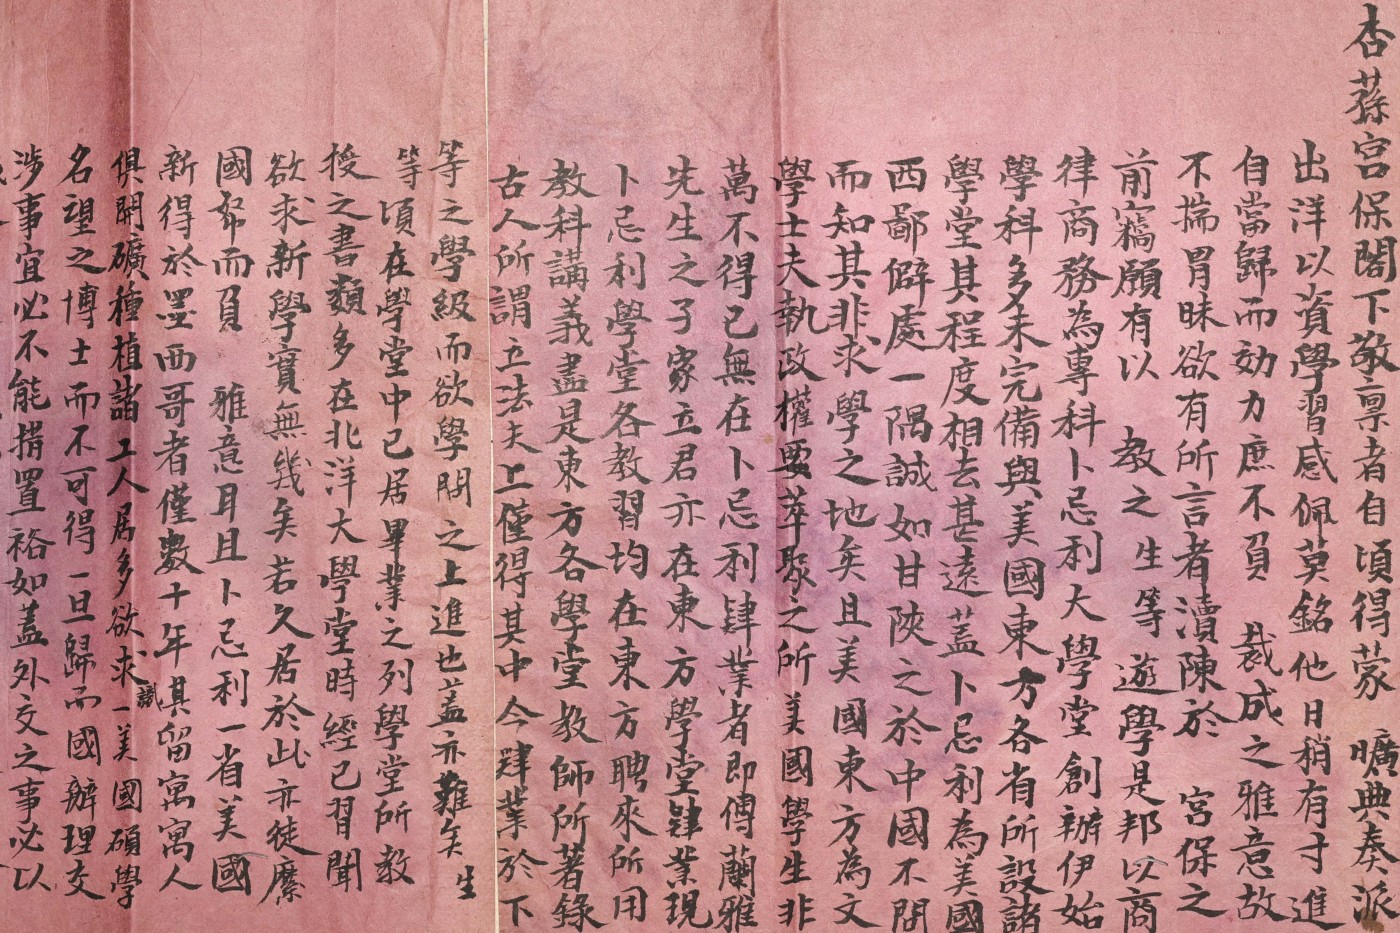 杏蓀宮保閣下敬禀者自頃得蒙　曠典奏派
出洋以資學習感佩莫銘他日稍有寸進
自當歸而効力庶不負　裁成之雅意故
不揣冒昧欲有所言者瀆陳於　宮保之
前竊願有以　教之生等遊學是邦以商
律商務為專科卜忌利大學堂創辦伊始
學科多未完備與美國東方各省所設諸
學堂其程度相去甚遠蓋卜忌利為美國
西鄙僻處一隅誠如甘陝之於中國不問
而知其非求學之地矣且美國東方為文
學士夫執政權要萃聚之所美國學生非
萬不得已無在卜忌利肆業者即傅蘭雅
先生之子家立君亦在東方學堂肄業現
卜忌利學堂各教習均在東方聘來所用
教科講義盡是東方各學堂教師所著錄
古人所謂立法夫上僅得其中今肆業於下
等之學級而欲學問之上進也蓋亦難矣生
等頃在學堂中已居畢業之列學堂所教
授之書類多在北洋大學堂時經已習聞
欲求新學實無幾矣若久居於此亦徒縻
國帑而負　雅意耳且卜忌利一省美國
新得於墨西哥者僅數十年其留寓寓人
俱開礦種植諸工人居多欲求一美國碩學
識
名望之博士而不可得一旦歸而國辦理交
涉事宜必不能措置裕如蓋外交之事必以